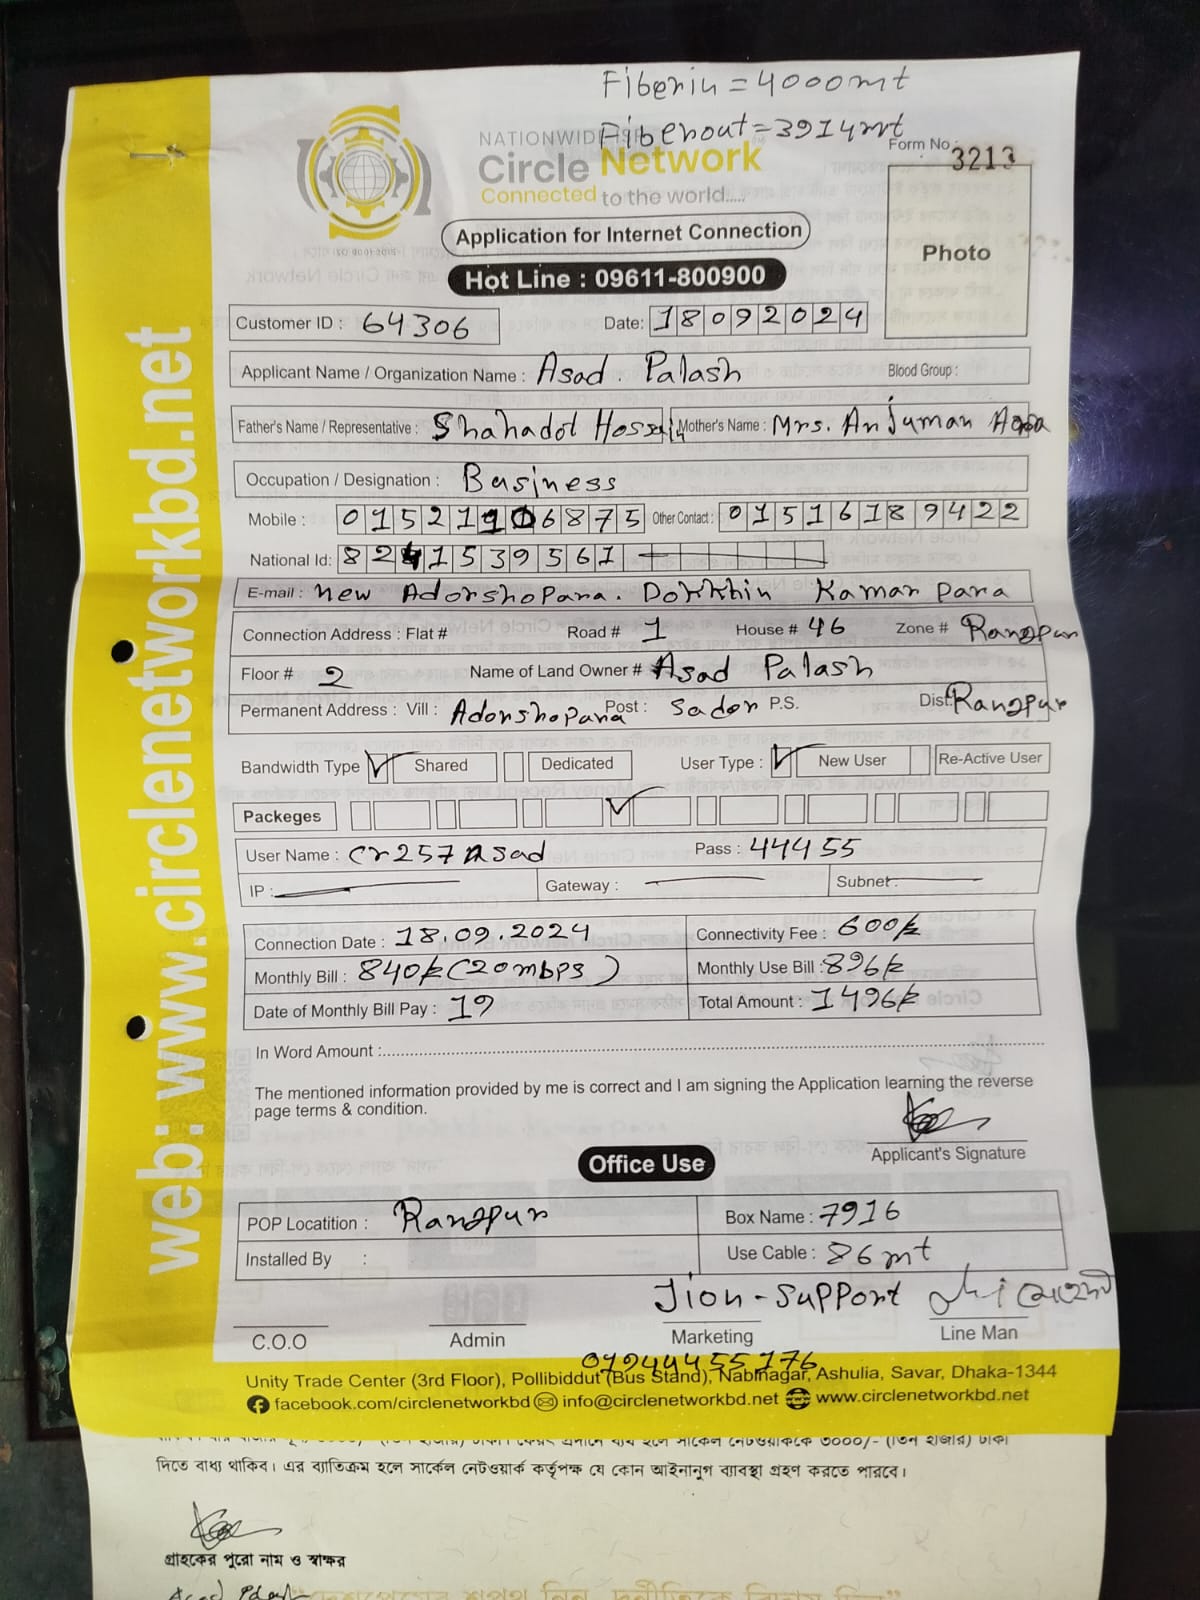 Fiberin = 4000mt
Fiberout = 3914mt
NATIONWIDE
Circle Network
Connected to the world.....
Form No. 3213
Photo
Application for Internet Connection
Hot Line : 09611-800900
Customer ID : 64306 Date: 18092024
Applicant Name / Organization Name : Asad. Palash Blood Group :
Father's Name / Representative : Shahadot Hossain Mother's Name : Mrs. Anjuman Ara
Occupation / Designation : Business
Mobile : 01521 06875 Other Contact : 01516189422
National Id: 8241539561
E-mail : New Adorshopara. Dokkhin Kamar para
Connection Address : Flat # Road # 1 House # 46 Zone # Rangpur
Floor # 2 Name of Land Owner # Asad Palash
Permanent Address : Vill : Adorshopara Post : Sador P.S. Dist. Rangpur
Bandwidth Type Shared Dedicated User Type : New User Re-Active User
Packeges
User Name : cr257Asad Pass : 44455
IP : Gateway : Subnet :
Connection Date : 18.09.2024 Connectivity Fee : 600/=
Monthly Bill : 840/= (20mbps) Monthly Use Bill : 896/=
Date of Monthly Bill Pay : 19 Total Amount : 1496/=
In Word Amount :
The mentioned information provided by me is correct and I am signing the Application learning the reverse
page terms & condition.
Applicant's Signature
Office Use
POP Locatition : Rangpur Box Name : 7916
Installed By : Use Cable : 86mt
Jion - Support
C.O.O Admin Marketing Line Man
01944455176
Unity Trade Center (3rd Floor), Pollibiddut (Bus Stand), Nabinagar, Ashulia, Savar, Dhaka-1344
facebook.com/circlenetworkbd info@circlenetworkbd.net www.circlenetworkbd.net
web: www.circlenetworkbd.net
দিতে বাধ্য থাকিব। এর ব্যতিক্রম হলে সার্কেল নেটওয়ার্ক কর্তৃপক্ষ যে কোন আইনানুগ ব্যাবস্থা গ্রহণ করতে পারবে।
গ্রাহকের পুরো নাম ও স্বাক্ষর
Asad Palash